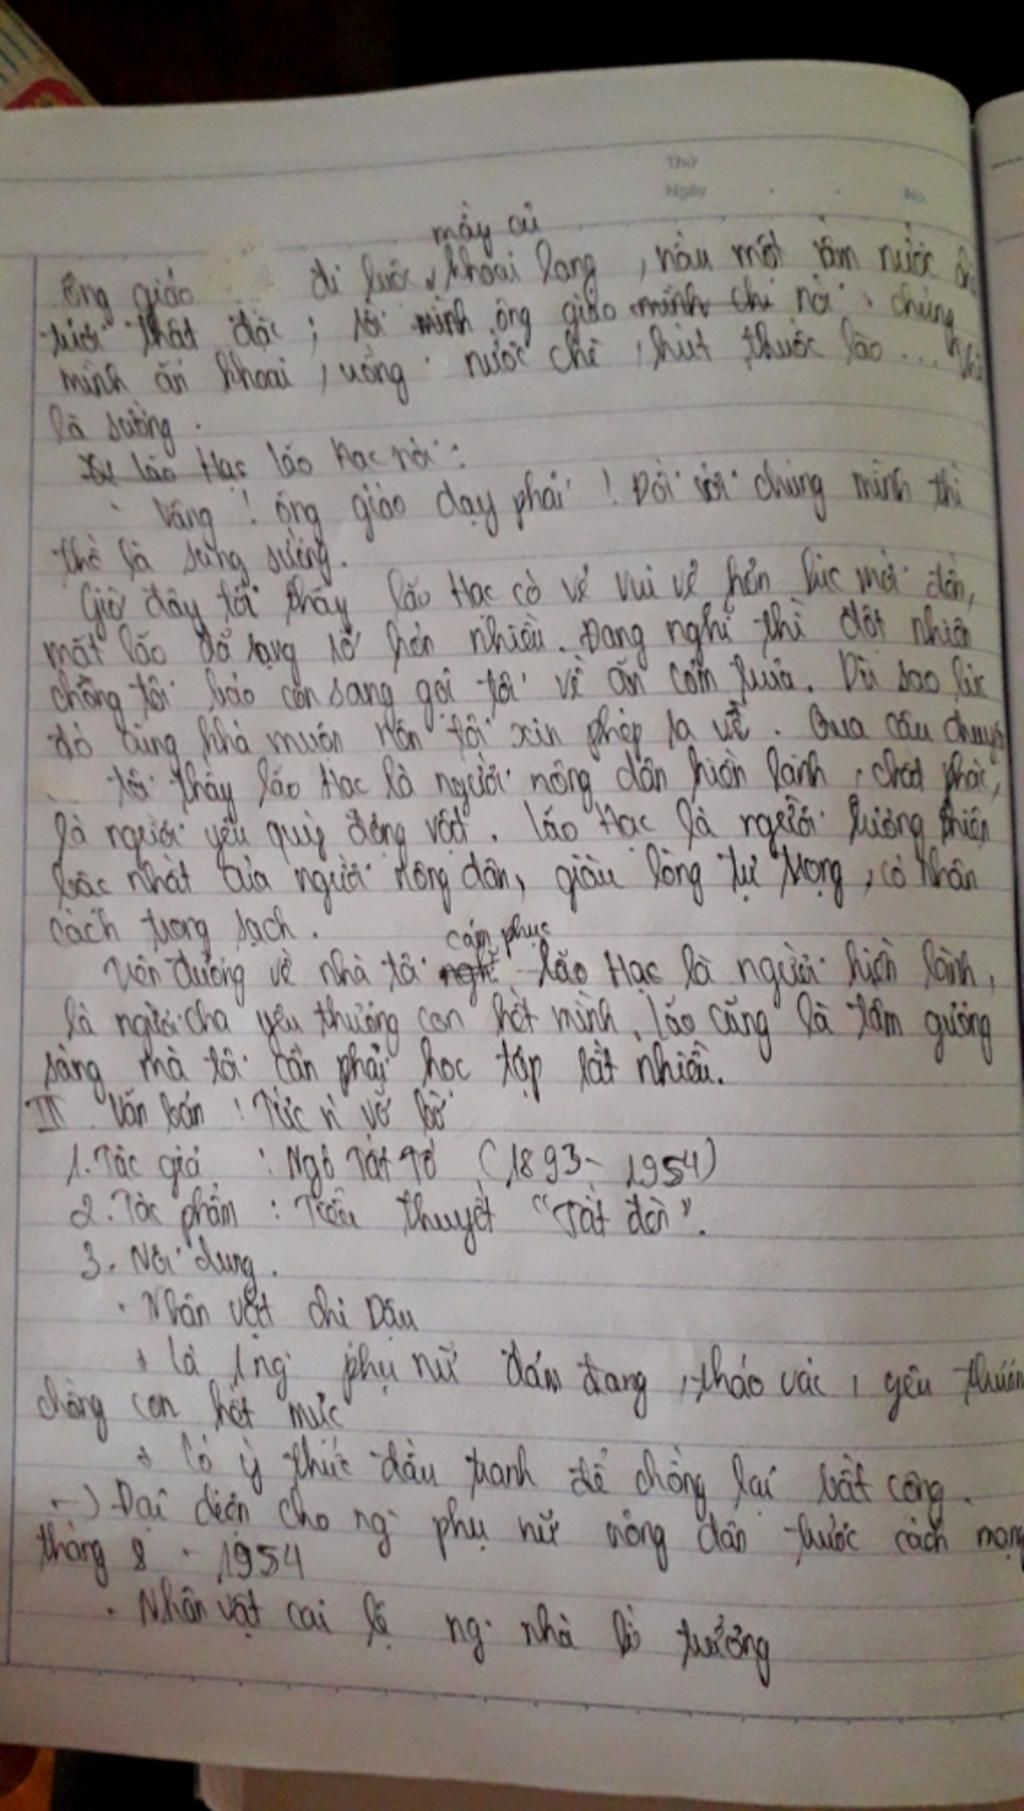 Thứ
Ngày No.
mấy củ
ông giáo đi luộc khoai lang, nấu một ấm nước
tươi thật đặc; rồi mình ông giáo minh chi nói: chúng
mình ăn khoai, uống nước chè, hút thuốc lào... thế
là sướng.
lão Hạc lão Hạc nói:
Vâng! ông giáo dạy phải! Đối với chúng mình thì
thế là sung sướng.
Giờ đây tôi thấy lão Hạc có vẻ vui vẻ hơn lúc mới đến,
mặt lão đỡ rạng rỡ hơn nhiều. Đang nghĩ thì đột nhiên
chồng tôi bảo con sang gọi tôi về ăn cơm trưa. Dù sao lúc
đó cũng khá muộn nên tôi xin phép ra về. Qua câu chuyện
tôi thấy lão Hạc là người nông dân hiền lành, chất phác,
là người yêu quý động vật. lão Hạc là người lương thiện
bậc nhất của người nông dân, giàu lòng tự trọng, có nhân
cách trong sạch.
cảm phục
Trên đường về nhà tôi nghĩ lão Hạc là người hiền lành,
là người cha yêu thương con hết mình, lão cũng là tấm gương
sáng mà tôi cần phải học tập rất nhiều.
III. Văn bản: Tức n' vỡ bờ
1. Tác giả: Ngô Tất Tố (1893 - 1954)
2. Tác phẩm: Tiểu thuyết "Tắt đèn".
3. Nội dung.
. Nhân vật chị Dậu
+ là 1 ng' phụ nữ đảm đang, tháo vác, yêu thương
chồng con hết mực
+ Có ý thức đấu tranh để chống lại bất công.
-> Đại diện cho ng' phụ nữ nông dân trước cách mạng
tháng 8 - 1954
. Nhân vật cai lệ ng' nhà lí trưởng